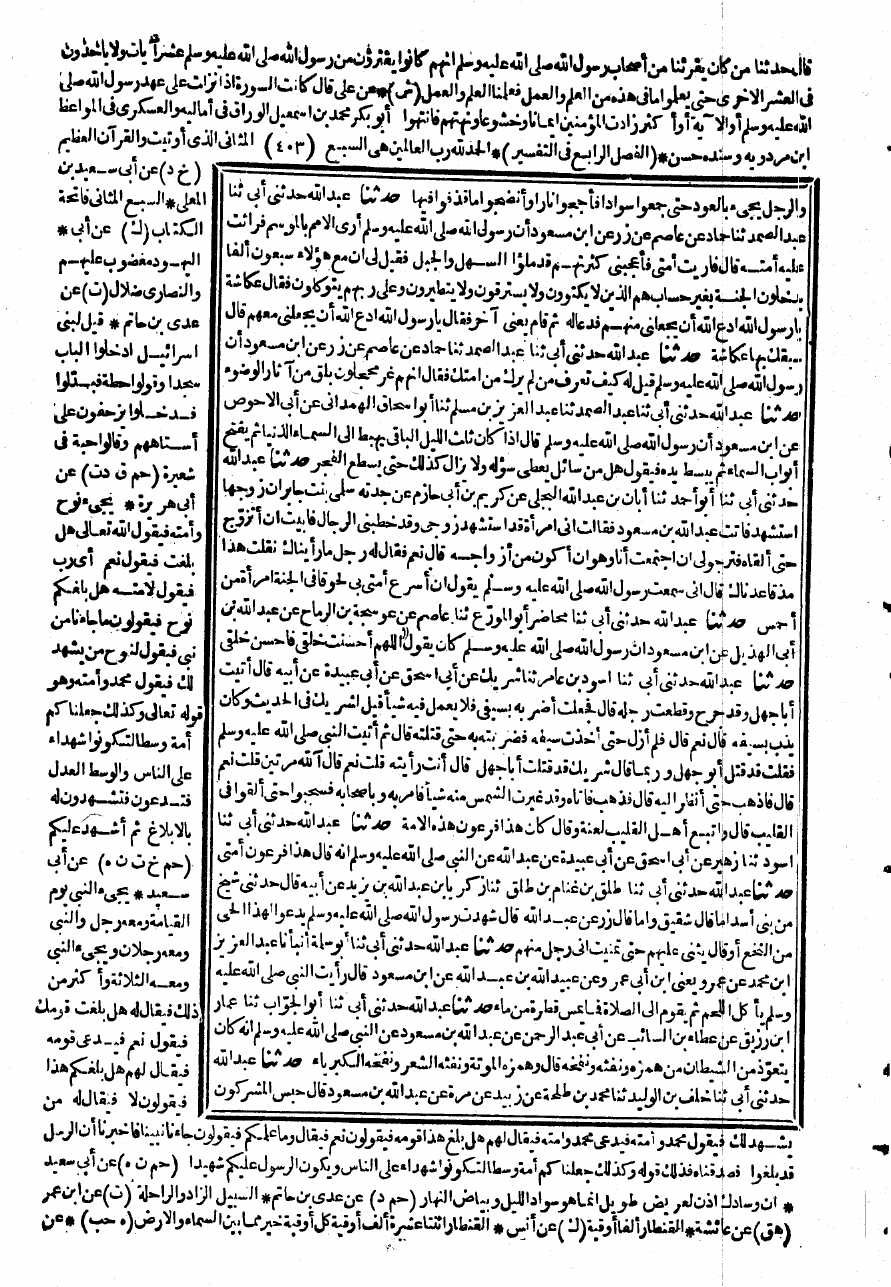 قال حدثنا من كان يقرئنا من أصحاب رسول الله صلى الله عليه وسلم انهم كانوا يقترؤن من رسول الله صلى الله عليه وسلم عشر آيات ولا يأخذون
فى العشر الاخرى حتى يعلموا مافى هذه من العلم والعمل فعلمنا العلم والعمل (ش) * عن على قال كانت السورة اذا نزلت على عهد رسول الله صلى
الله عليه وسلم أو الآية أو أكثر زادت المؤمنين ايمانا وخشوعا ونهتهم فانتهوا أبو بكر محمد بن اسمعيل الوراق فى أماليه والعسكرى فى المواعظ
ابن مردويه وسنده حسن * (الفصل الرابع فى التفسير) * الحمد لله رب العالمين هى السبع (٤٠٣) المثانى الذى أوتيت والقرآن العظيم
والرجل يجىء بالعود حتى جمعوا سوادا فأججوا نارا وأنضجوا ماقذفوا فيها حدثنا عبد الله حدثنى أبى ثنا
عبد الصمد ثنا حماد عن عاصم عن زر عن ابن مسعود أن رسول الله صلى الله عليه وسلم أرى الامم بالموسم فراثت
عليه أمته قال فاريت أمتى فأعجبنى كثرتهم قد ملؤا السهل والجبل فقيل لى ان مع هؤلاء سبعون ألفا
يدخلون الجنة بغير حساب هم الذين لا يكتوون ولا يسترقون ولا يتطيرون وعلى ربهم يتوكلون فقال عكاشة
يارسول الله ادع الله أن يجعلنى منهم فدعاله ثم قام يعنى آخر فقال يارسول الله ادع الله أن يجعلنى معهم قال
سبقك بها عكاشة حدثنا عبد الله حدثنى أبى ثنا عبد الصمد ثنا حماد عن عاصم عن زر عن ابن مسعود أن
رسول الله صلى الله عليه وسلم قيل له كيف تعرف من لم يرك من امتك فقال انهم غر محجلون بلق من آثار الوضوء
حدثنا عبد الله حدثنى أبى ثنا عبد الصمد ثنا عبد العزيز بن مسلم ثنا أبو اسحاق الهمدانى عن أبى الاحوص
عن ابن مسعود أن رسول الله صلى الله عليه وسلم قال اذا كان ثلث الليل الباقى يهبط الى السماء الدنيا ثم يفتح
أبواب السماء ثم يبسط يده فيقول هل من سائل يعطى سؤله ولا يزال كذلك حتى يسطع الفجر حدثنا عبد الله
حدثنى أبى ثنا أبو أحمد ثنا أبان بن عبد الله البجلى عن كريم بن أبى حازم عن جدته سلمى بنت جابر ان زوجها
استشهد فاتت عبد الله بن مسعود فقالت انى امرأة قد استشهد زوجى وقد خطبنى الرجال فابيت ان أتزوج
حتى ألقاه فترجولى ان اجتمعت أنا وهو ان أكون من أزواجه قال نعم فقال له رجل ما رأيناك نقلت هذا
مذ قاعدناك قال انى سمعت رسول الله صلى الله عليه وسلم يقول ان أسرع أمتى بى لحوقا فى الجنة امرأة من
أحمس حدثنا عبد الله حدثنى أبى ثنا محاضر أبو المورع ثنا عاصم عن عوسجة بن الرماح عن عبد الله بن
أبى الهذيل عن ابن مسعود ان رسول الله صلى الله عليه وسلم كان يقول اللهم أحسنت خلقى فاحسن خلقى
حدثنا عبد الله حدثنى أبى ثنا اسود بن عامر ثنا شريك عن أبى اسحق عن أبى عبيدة عن أبيه قال أتيت
أبا جهل وقد جرح وقطعت رجله قال فجعلت أضربه بسيفى فلا يعمل فيه شيأ قيل لشريك فى الحديث وكان
يذب بسيفه قال نعم قال فلم أزل حتى أخذت سيفه فضربته به حتى قتلته قال ثم أتيت النبى صلى الله عليه وسلم
فقلت قد قتل أبو جهل وربما قال شريك قد قتلت أبا جهل قال أنت رأيته قلت نعم قال آلله مرتين قلت نعم
قال فاذهب حتى أنظر اليه قال فذهب فاتاه وقد غيرت الشمس منه شيأ فامر به وباصحابه فسحبوا حتى ألقوا فى
القليب قال واتبع أهل القليب لعنة وقال كان هذا فرعون هذه الامة حدثنا عبد الله حدثنى أبى ثنا
اسود ثنا زهير عن أبى اسحق عن أبى عبيدة عن عبد الله عن النبى صلى الله عليه وسلم انه قال هذا فرعون أمتى
حدثنا عبد الله حدثنى أبى ثنا طلق بن غنام بن طلق ثنا زكريا بن عبد الله بن يزيد عن أبيه قال حدثنى شيخ
من بنى أسد اما قال شقيق واما قال زر عن عبد الله قال شهدت رسول الله صلى الله عليه وسلم يدعو لهذا الحى
من النخع أو قال يثنى عليهم حتى تمنيت انى رجل منهم حدثنا عبد الله حدثنى أبى ثنا أبو سلمة أنبأنا عبد العزيز
ابن محمد عن عمرو يعنى ابن أبى عمرو عن عبيد الله بن عبد الله عن ابن مسعود قال رأيت النبى صلى الله عليه
وسلم يأكل اللحم ثم يقوم الى الصلاة فما يمس قطرة من ماء حدثنا عبد الله حدثنى أبى ثنا أبو الجواب ثنا عمار
ابن رزيق عن عطاء بن السائب عن أبى عبد الرحمن عن عبد الله بن مسعود عن النبى صلى الله عليه وسلم انه كان
يتعوذ من الشيطان من همزه ونفثه ونفخه قال وهمزه الموتة ونفثه الشعر ونفخه الكبرياء حدثنا عبد الله
حدثنى أبى ثنا خلف بن الوليد ثنا محمد بن طلحة عن زبيد عن مرة عن عبد الله بن مسعود قال حبس المشركون
(خ د) عن أبى سعيد بن
المعلى * السبع المثانى فاتحة
الكتاب (ك) عن أبى *
اليهود مغضوب عليهم
والنصارى ضلال (ت) عن
عدى بن حاتم * قيل لبنى
اسرائيل ادخلوا الباب
سجدا وقولوا حطة فبدلوا
فدخلوا يزحفون على
أستاههم وقالوا حبة فى
شعيرة (حم ق د ت) عن
أبى هريرة * يجىء نوح
وأمته فيقول الله تعالى هل
بلغت فيقول نعم أى رب
فيقول لامته هل بلغكم
نوح فيقولون ماجاءنا من
نبى فيقول لنوح من يشهد
لك فيقول محمد وأمته وهو
قوله تعالى وكذلك جعلناكم
أمة وسطا لتكونوا شهداء
على الناس والوسط العدل
فتدعون فتشهدون له
بالابلاغ ثم أشهد عليكم
(حم خ ت ن ه) عن أبى
سعيد * يجىء النبى يوم
القيامة ومعه رجل والنبى
ومعه رجلان ويجىء النبى
ومعه الثلاثة وأكثر من
ذلك فيقال له هل بلغت قومك
فيقول نعم فيدعى قومه
فيقال لهم هل بلغكم هذا
فيقولون لا فيقال له من
يشهد لك فيقول محمد وأمته فيدعى محمد وامته فيقال لهم هل بلغ هذا قومه فيقولون نعم فيقال وما علمكم فيقولون جاءنا نبينا فاخبرنا أن الرسل
قد بلغوا فصدقناه فذلك قوله وكذلك جعلناكم أمة وسطا لتكونوا شهداء على الناس ويكون الرسول عليكم شهيدا (حم ن ه) عن أبى سعيد
* ان وسادك اذن لعريض طويل انما هو سواد الليل وبياض النهار (حم د) عن عدى بن حاتم * السبيل الزاد والراحلة (ت) عن ابن عمر
(هق) عن عائشة * القنطار ألفا أوقية (ك) عن أنس * القنطار اثنتا عشرة ألف أوقية كل أوقية خير مما بين السماء والارض (ه حب) * عن